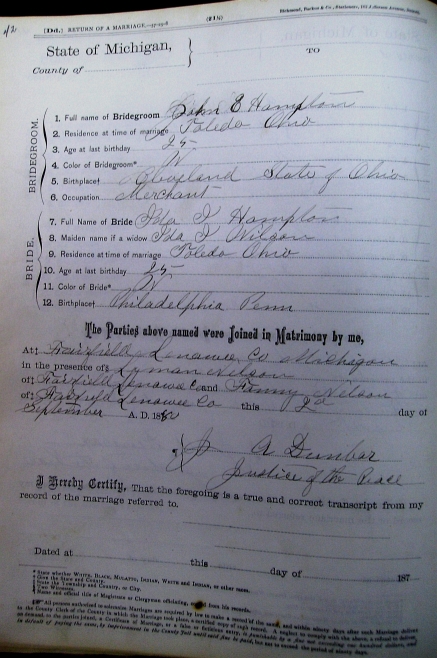 42
[Dd.] RETURN OF A MARRIAGE.
(218)
Richmond, Backus & Co., Stationers, Detroit.
State of Michigan, }
TO
County of
BRIDEGROOM.
1. Full name of Bridegroom John E Hampton
2. Residence at time of marriage Toledo Ohio
3. Age at last birthday 25
4. Color of Bridegroom* W
5. Birthplace† Cleveland State of Ohio
6. Occupation Merchant
BRIDE.
7. Full Name of Bride Ida I Hampton
8. Maiden name if a widow Ida I Wilson
9. Residence at time of marriage Toledo Ohio
10. Age at last birthday 25
11. Color of Bride* W
12. Birthplace† Philadelphia Penn
The Parties above named were Joined in Matrimony by me,
At‡ Fairfield Lenawee Co Michigan
in the presence of§ Lyman Nelson
of‡ Fairfield Lenawee Co and Fanny Nelson
of‡ Fairfield Lenawee Co this 2d day of
September A. D. 1882
A Dunbar
Justice of the Peace
I Hereby Certify, That the foregoing is a true and correct transcript from my
record of the marriage referred to.
Dated at
this day of 187
* State whether WHITE, BLACK, MULATTO, INDIAN, WHITE and INDIAN, or other name.
† Give the State and County.
‡ State the Township and County, or City.
§ Two Witnesses.
Name and official title of Magistrate or Clergyman officiating, from his records.